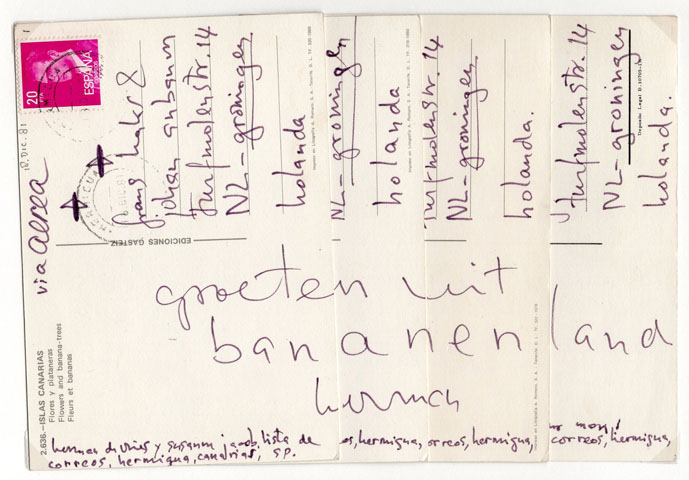 20
PTA
ESPAÑA
18.DIC.81
via aerea
frans haks &
johan ambaum
turfmolenstr. 14
NL-groningen
holanda
NL-groningen
holanda
turfmolenstr. 14
NL-groningen
holanda.
turfmolenstr. 14
NL-groningen
holanda.
EDICIONES GASTEIZ
groeten uit
bananenland
herman
2.636.-ISLAS CANARIAS
Flores y plataneras
Flowers and banana-trees
Fleurs et bananas
herman de vries y susanne jacob, lista de
correos, hermigua, canarias, sp.
os, hermigua,
orreos, hermigua,
correos, hermigua,